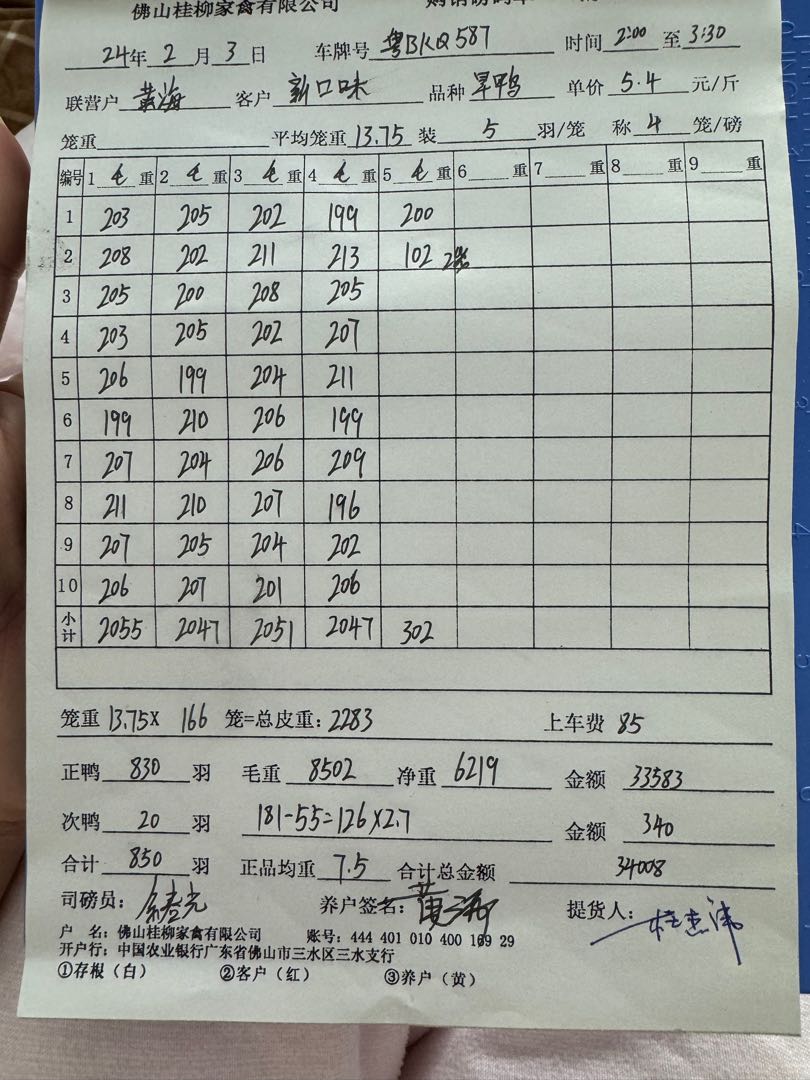 佛山桂柳家禽有限公司
24年 2 月 3 日 车牌号 粤BKQ587 时间 2:00 至 3:30
联营户 黄海 客户 新口味 品种 旱鸭 单价 5.4 元/斤
笼重 平均笼重 13.75 装 5 羽/笼 称 4 笼/磅
编号 1 毛 重 2 毛 重 3 毛 重 4 毛 重 5 毛 重 6 重 7 重 8 重 9 重
1 203 205 202 199 200
2 208 202 211 213 102 2笼
3 205 200 208 205
4 203 205 202 207
5 206 199 204 211
6 199 210 206 199
7 207 204 206 209
8 211 210 207 196
9 207 205 204 202
10 206 207 201 206
小计 2055 2047 2051 2047 302
笼重 13.75X 166 笼=总皮重: 2283 上车费 85
正鸭 830 羽 毛重 8502 净重 6219 金额 33583
次鸭 20 羽 181-55=126X2.7 金额 340
合计 850 羽 正品均重 7.5 合计总金额 34008
司磅员: 养户签名: 黄海 提货人:
户 名: 佛山桂柳家禽有限公司 账号: 444 401 010 400 169 29
开户行: 中国农业银行广东省佛山市三水区三水支行
①存根(白) ②客户(红) ③养户(黄)